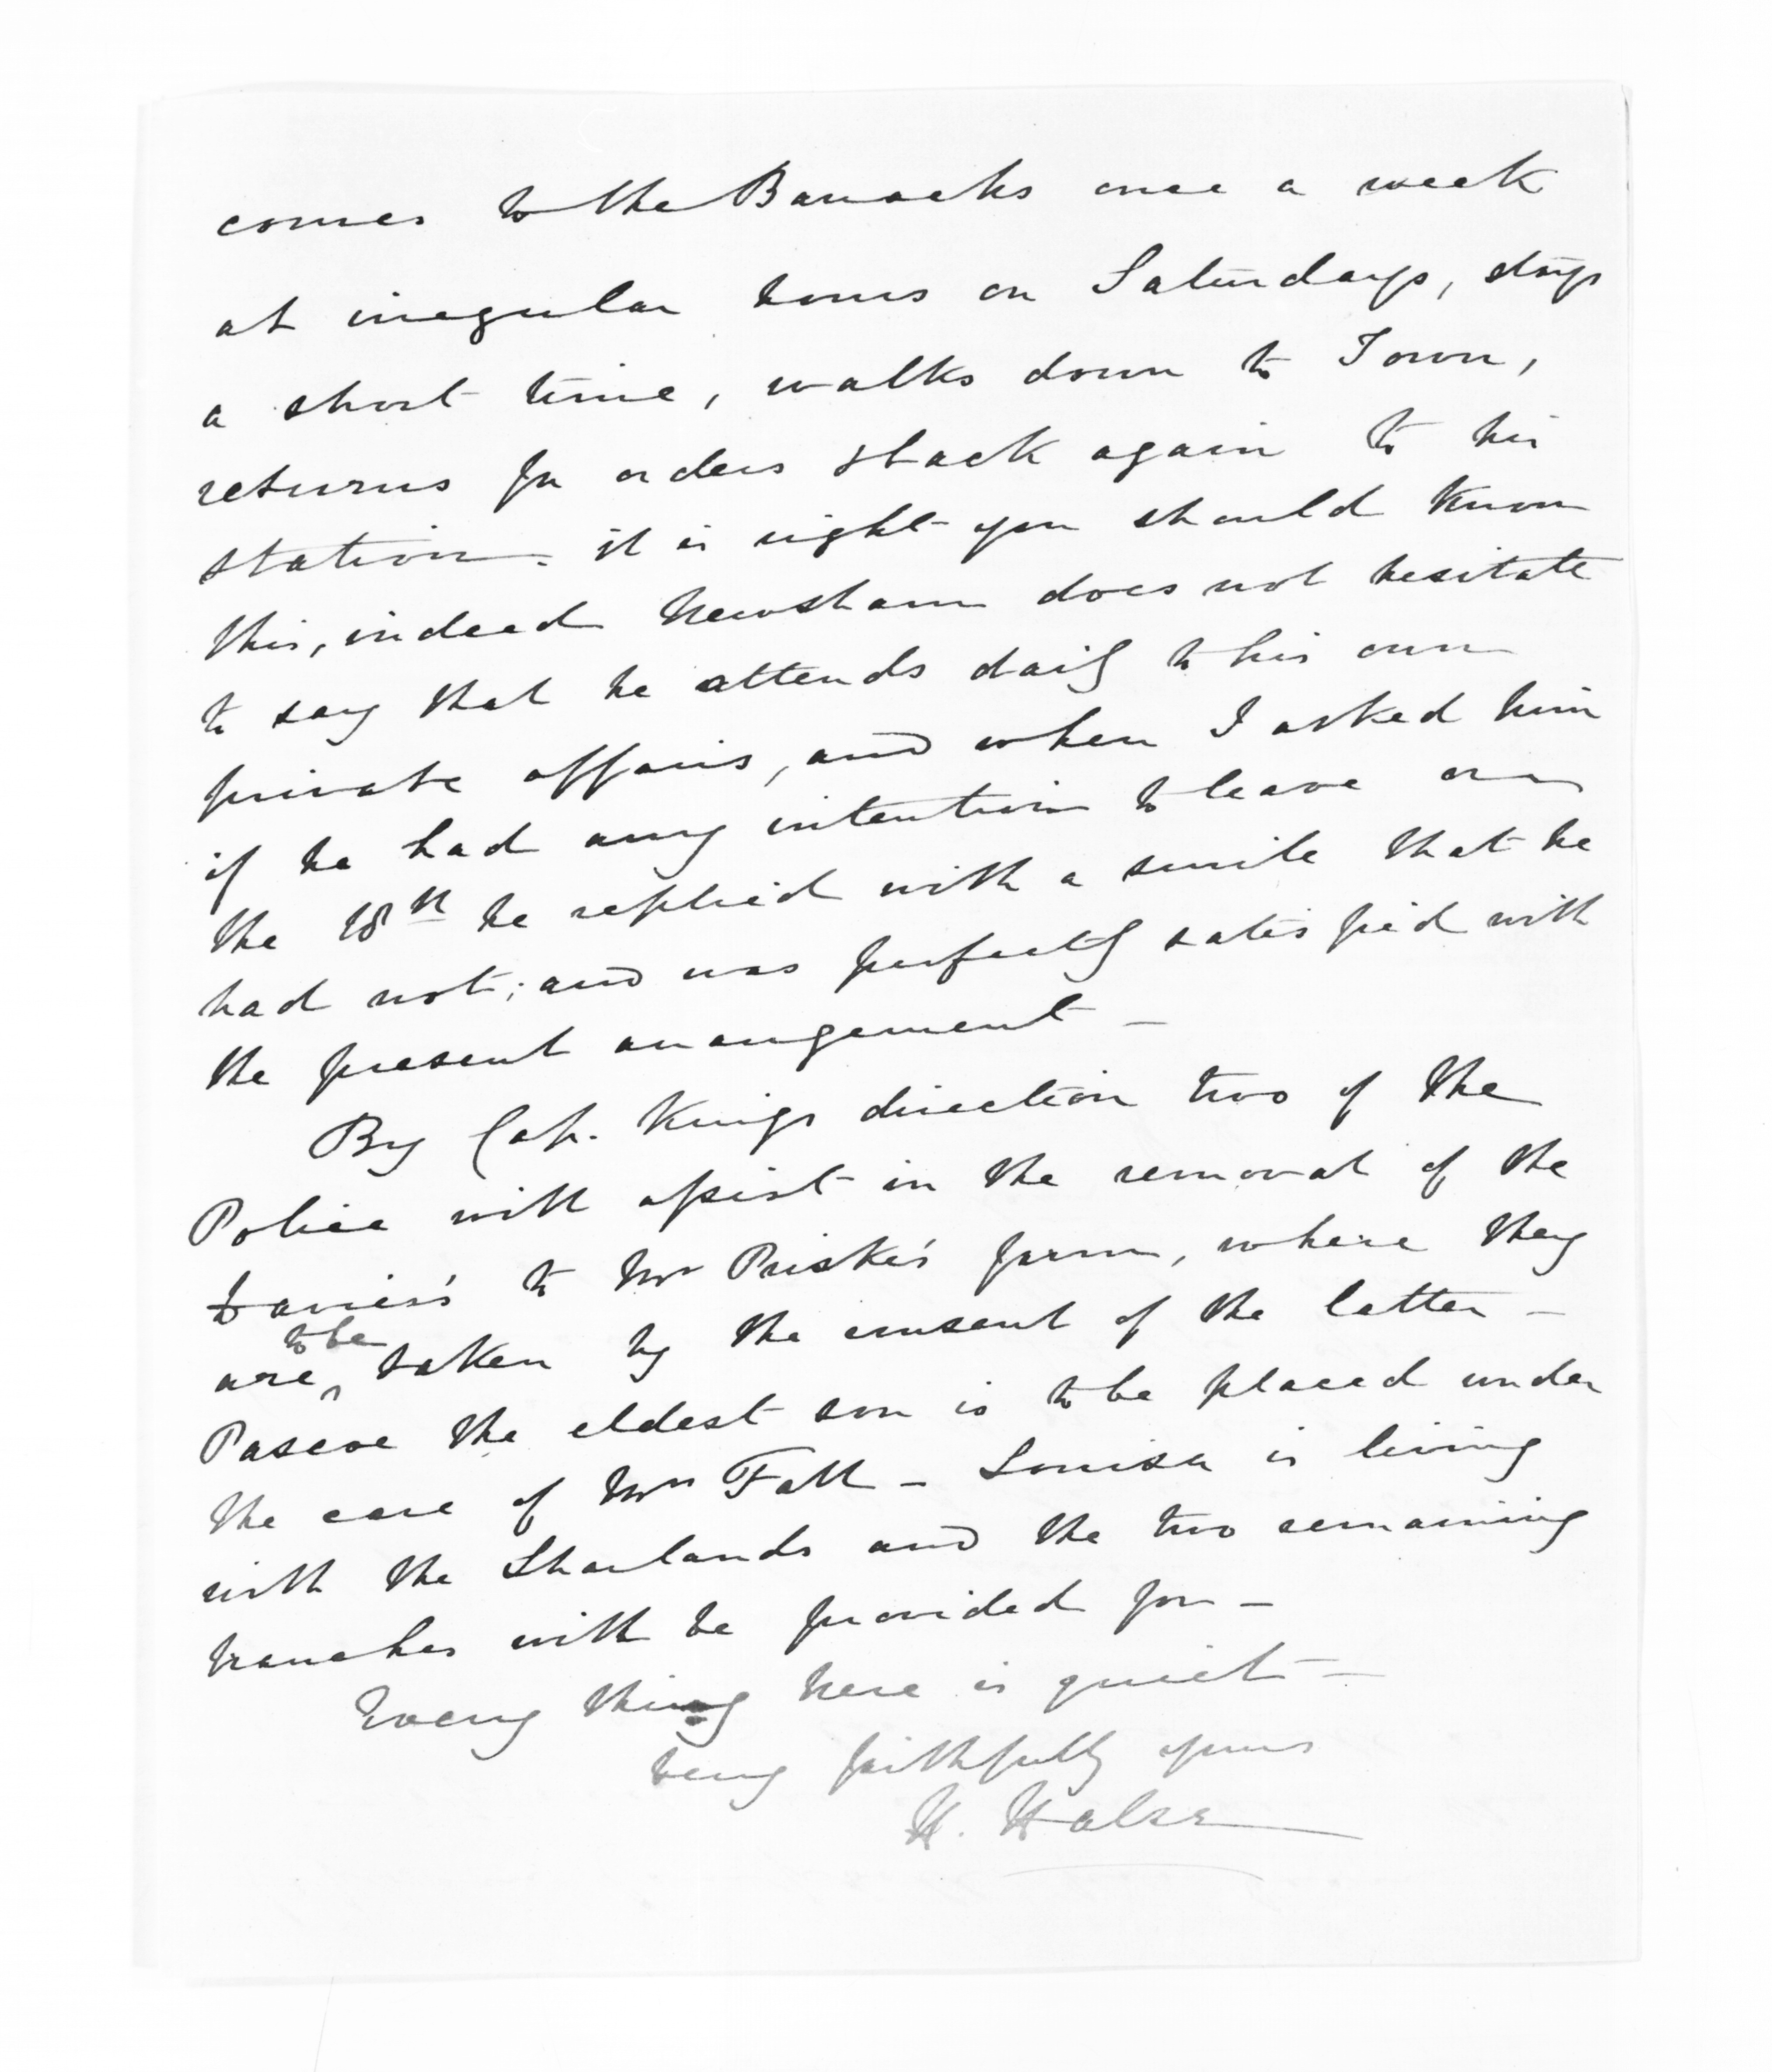 comes to the Barracks once a week
at irregular hours on Saturdays, stays
a short time, walks down to Town,
returns for orders & back again to his
station. it is right you should know
this, indeed Newsham does not hesitate
to say that he attends daily to his own
private affairs, and when I asked him
if he had any intention to leave on
the 18th he replied with a smile that he
had not; and was perfectly satisfied with
the present arrangement —
By Cap. Kings direction two of the
Police will assist in the removal of the
Davies's to Mr Priske's farm, where they
are to be taken by the consent of the latter —
Pascoe the eldest son is to be placed under
the care of Mrs Fall — Louisa is living
with the Sharlands and the two remaining
branches will be provided for —
Every thing here is quiet —
Very faithfully yours
H. Halse